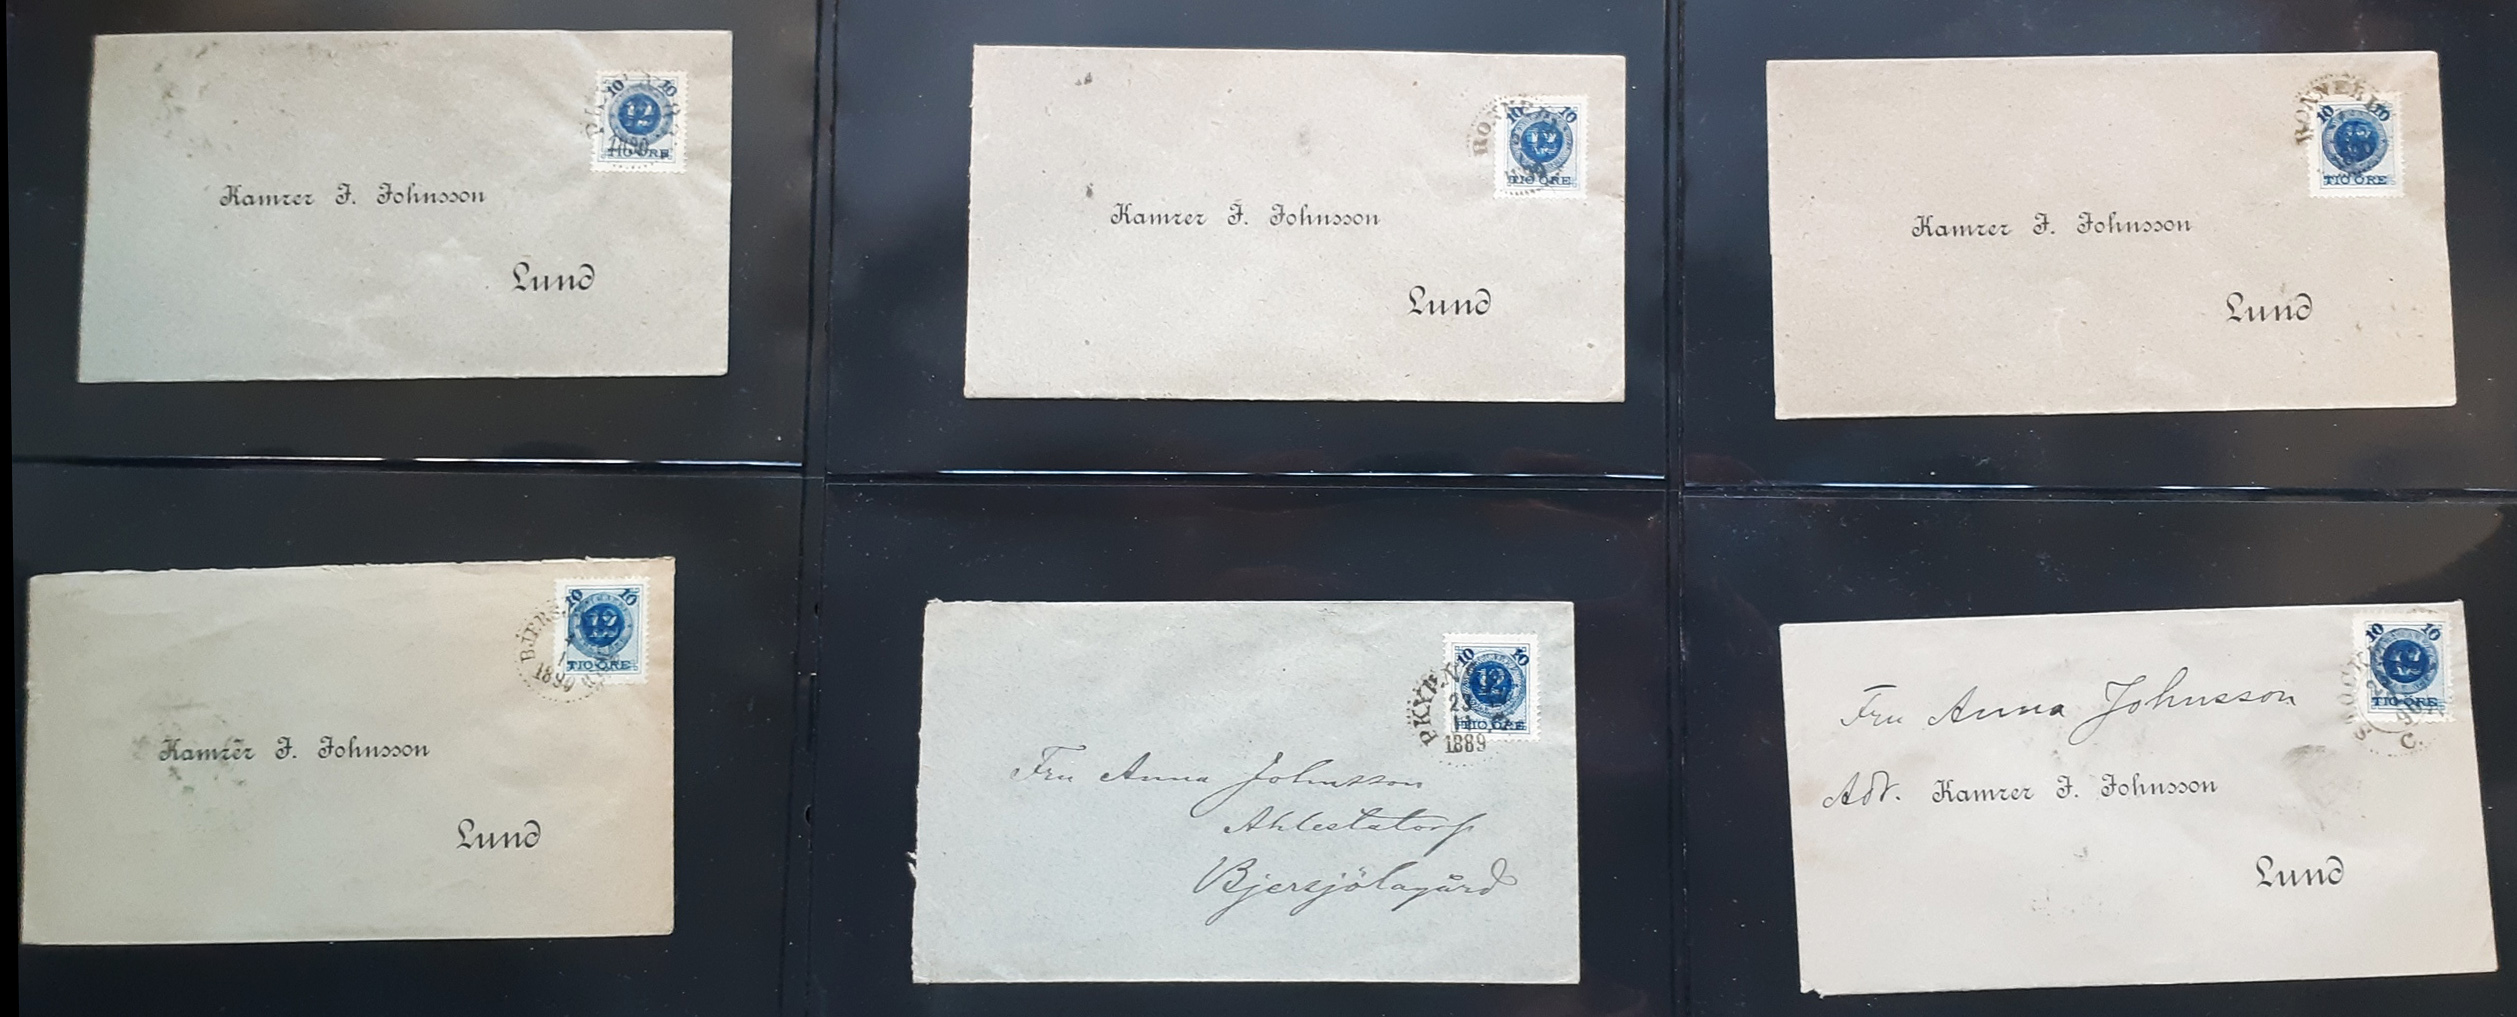 10 10
12
1890
TIO ÖRE
Kamrer J. Johnsson
Lund
10 10
12
TIO ÖRE
Kamrer J. Johnsson
Lund
RONNEBY
10 10
12
TIO ÖRE
Kamrer J. Johnsson
Lund
10 10
12
1890
TIO ÖRE
Kamrer J. Johnsson
Lund
10 10
12
23
11
1889
TIO ÖRE
Fru Anna Johnsson
Ahlestatorp
Bjersjölagård
10 10
12
TIO ÖRE
C.
Fru Anna Johnsson
Adr. Kamrer J. Johnsson
Lund